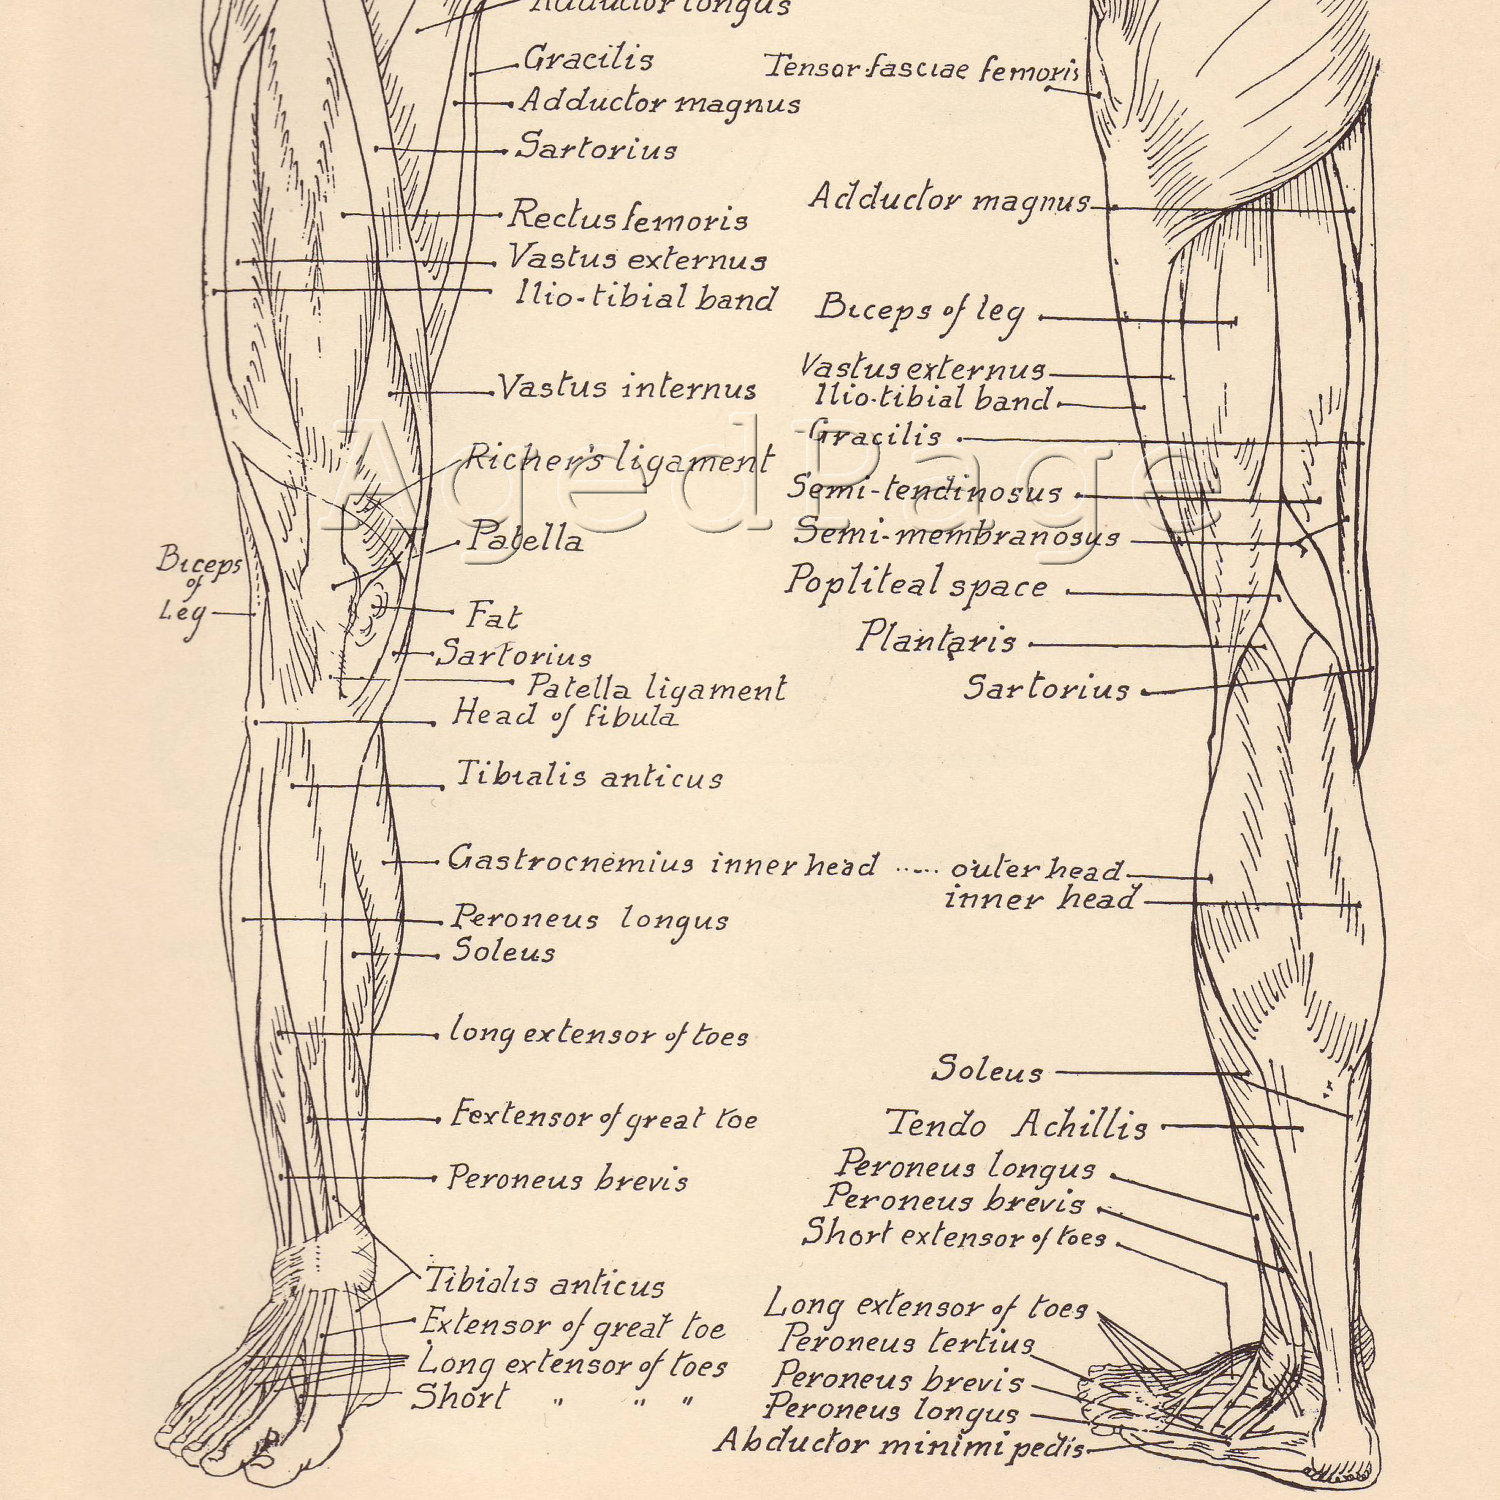 Adductor longus
Gracilis
Adductor magnus
Sartorius
Rectus femoris
Vastus externus
Ilio-tibial band
Vastus internus
Richer's ligament
Patella
Biceps
of
Leg
Fat
Sartorius
Patella ligament
Head of fibula
Tibialis anticus
Gastrocnemius inner head ..... outer head
inner head
Peroneus longus
Soleus
long extensor of toes
Eextensor of great toe
Peroneus brevis
Tibialis anticus
Extensor of great toe
Long extensor of toes
Short " " "
Tensor fasciae femoris
Adductor magnus
Biceps of leg
Vastus externus
Ilio-tibial band
Gracilis
Semi-tendinosus
Semi-membranosus
Popliteal space
Plantaris
Sartorius
Soleus
Tendo Achillis
Peroneus longus
Peroneus brevis
Short extensor of toes
Long extensor of toes
Peroneus tertius
Peroneus brevis
Peroneus longus
Abductor minimi pedis
AgedPage